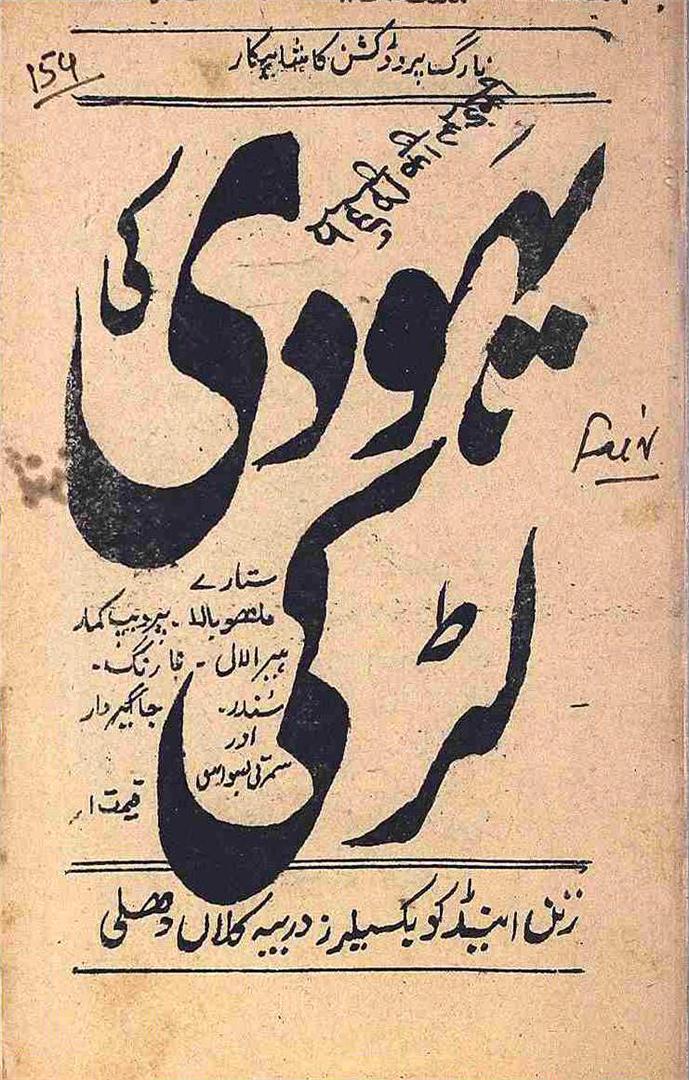 154
نارنگ پروڈکشن کا شاہکار
یہودی کی
لڑکی
Fair
ستارے
مدھوبالا - پردیپ کمار
ہیرالال - نارنگ -
سُندر - جاگیردار
اور
سمرتی بسواس
قیمت ۱ر
رتن اینڈ کو بکسیلرز دریبہ کلاں دھلی